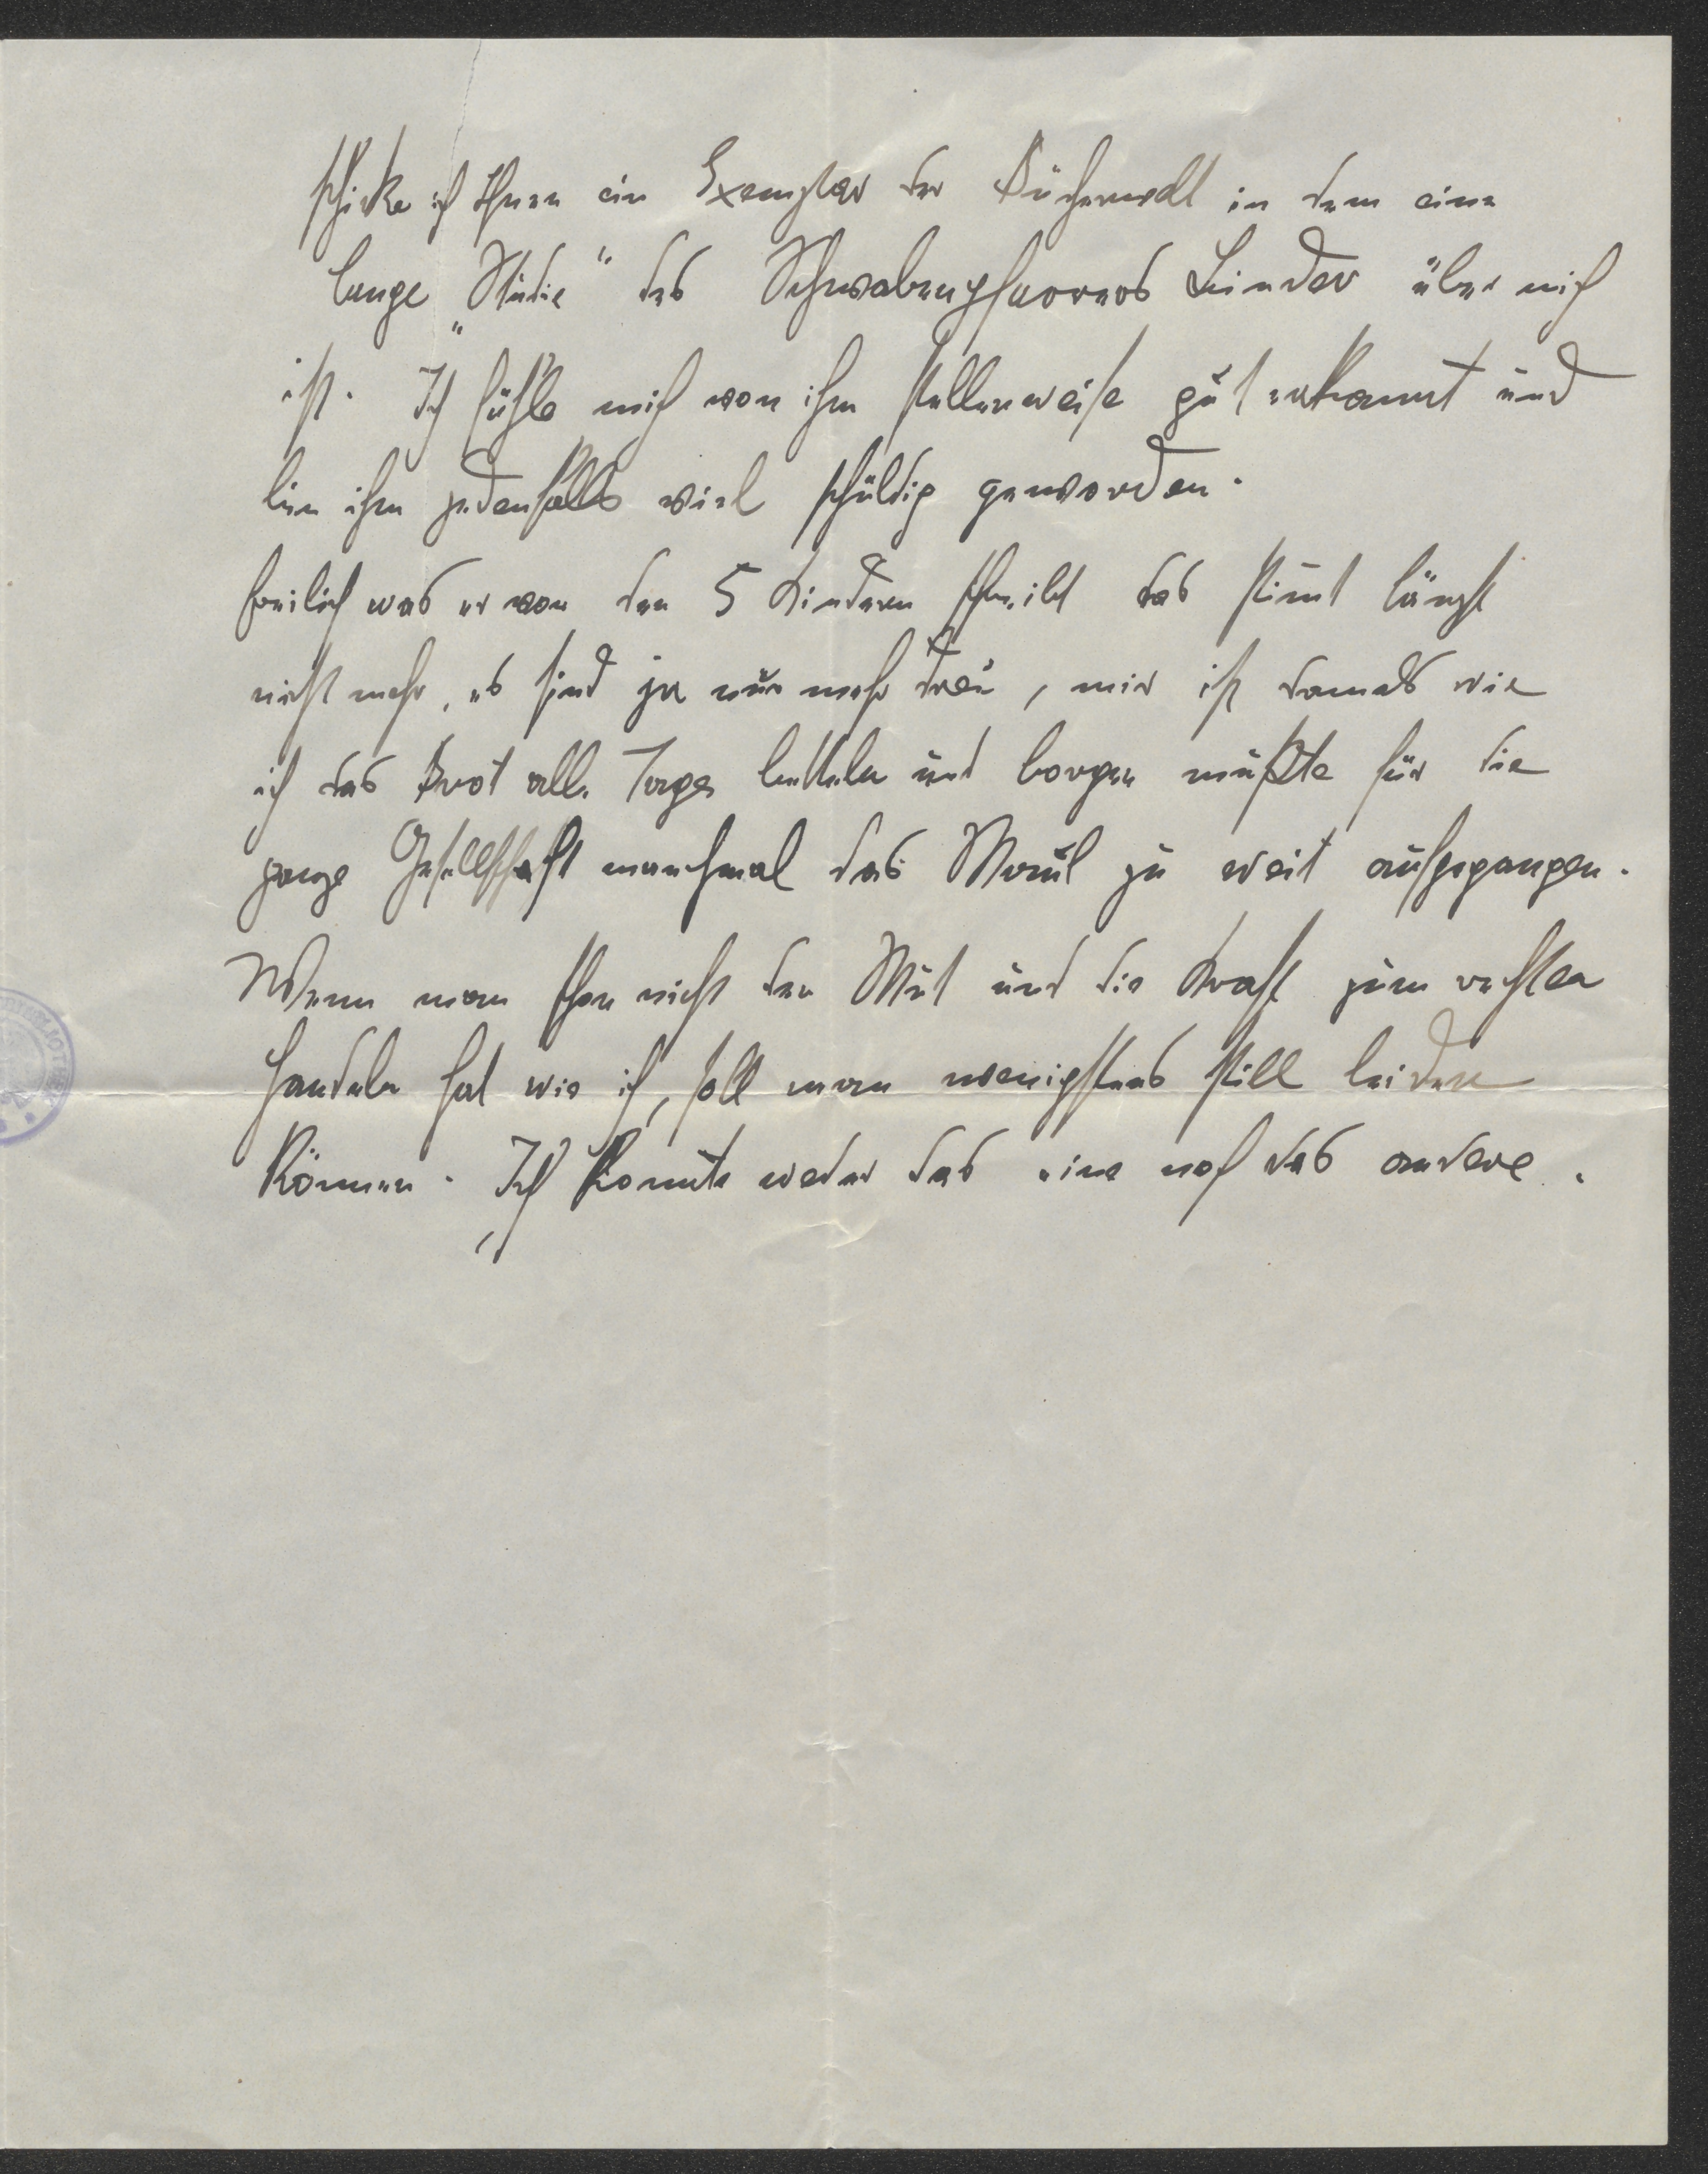 schicke ich Ihnen ein Exemplar der Bücherwelt in dem eine
lange „Studie“ des Schwabenpfarrers Linder über mich
ist. Ich fühle mich von ihm stellenweise gut erkannt und
bin ihm jedenfalls viel schuldig geworden.
freilich was er von den 5 Kindern schreibt das stim̄t längst
nicht mehr, es sind ja nur mehr drei, mir ist damals wie
ich das Brot alle Tage betteln und borgen mußte für die
ganze Gesellschaft manchmal das Maul zu weit aufgegangen.
Wenn man schon nicht den Mut und die Kraft zum rechten
Handeln hat wie ich, soll man wenigstens still leiden
können. Ich konnte weder das eine noch das andere.